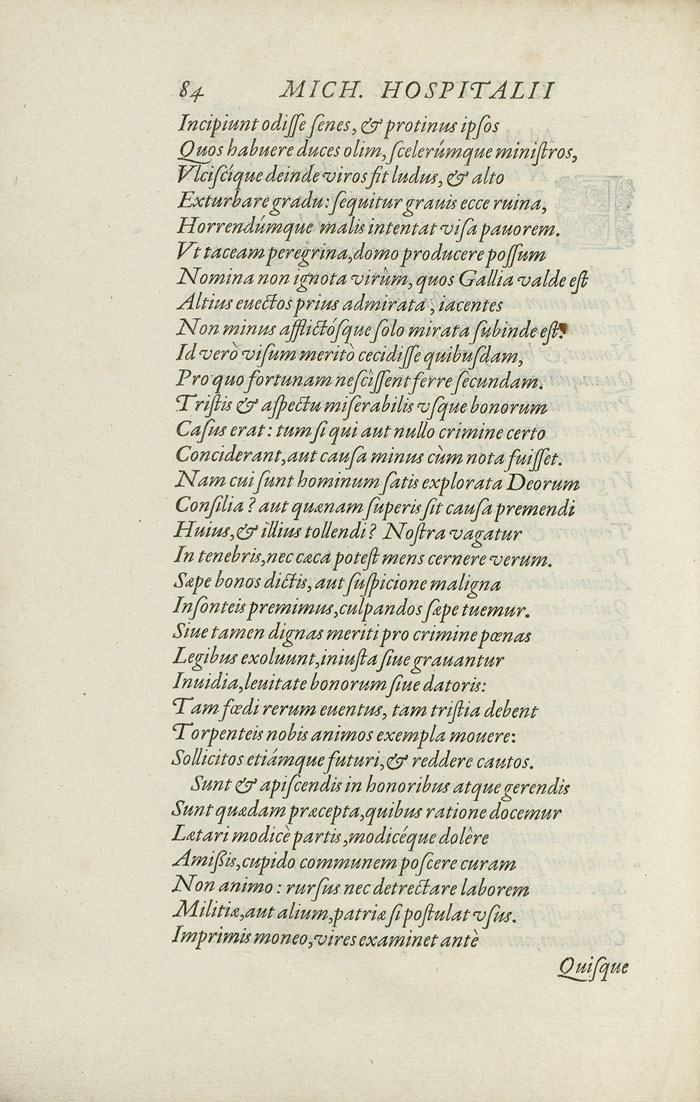 84 MICH. HOSPITALII
Incipiunt odiſſe ſenes, & protinus ipſos
Quos habuere duces olim, ſcelerúmque miniſtros,
Vlciſcíque deinde viros fit ludus, & alto
Exturbare gradu: ſequitur grauis ecce ruina,
Horrendúmque malis intentat viſa pauorem.
Vt taceam peregrina,domo producere poſſum
Nomina non ignota virùm, quos Gallia valde eſt
Altius euectos prius admirata, iacentes
Non minus afflictóſque ſolo mirata ſubinde eſt.
Id verò viſum meritò cecidiſſe quibuſdam,
Pro quo fortunam neſciſſent ferre ſecundam.
Triſtis & aſpectu miſerabilis vſque bonorum
Caſus erat: tum ſi qui aut nullo crimine certo
Conciderant,aut cauſa minus cùm nota fuiſſet.
Nam cui ſunt hominum ſatis explorata Deorum
Conſilia? aut quænam ſuperis ſit cauſa premendi
Huius,& illius tollendi? Noſtra vagatur
In tenebris,nec cæca poteſt mens cernere verum.
Sæpe bonos dictis, aut ſuſpicione maligna
Inſonteis premimus,culpandos ſæpe tuemur.
Siue tamen dignas meriti pro crimine pœnas
Legibus exoluunt,iniuſta ſiue grauantur
Inuidia,leuitate bonorum ſiue datoris:
Tam fœdi rerum euentus, tam triſtia debent
Torpenteis nobis animos exempla mouere:
Sollicitos etiámque futuri,& reddere cautos.
Sunt & apiſcendis in honoribus atque gerendis
Sunt quædam præcepta,quibus ratione docemur
Lætari modicè partis,modicéque dolêre
Amißis,cupido communem poſcere curam
Non animo: rurſus nec detrectare laborem
Militiæ,aut alium,patriæ ſi poſtulat vſus.
Imprimis moneo,vires examinet antè
Quiſque